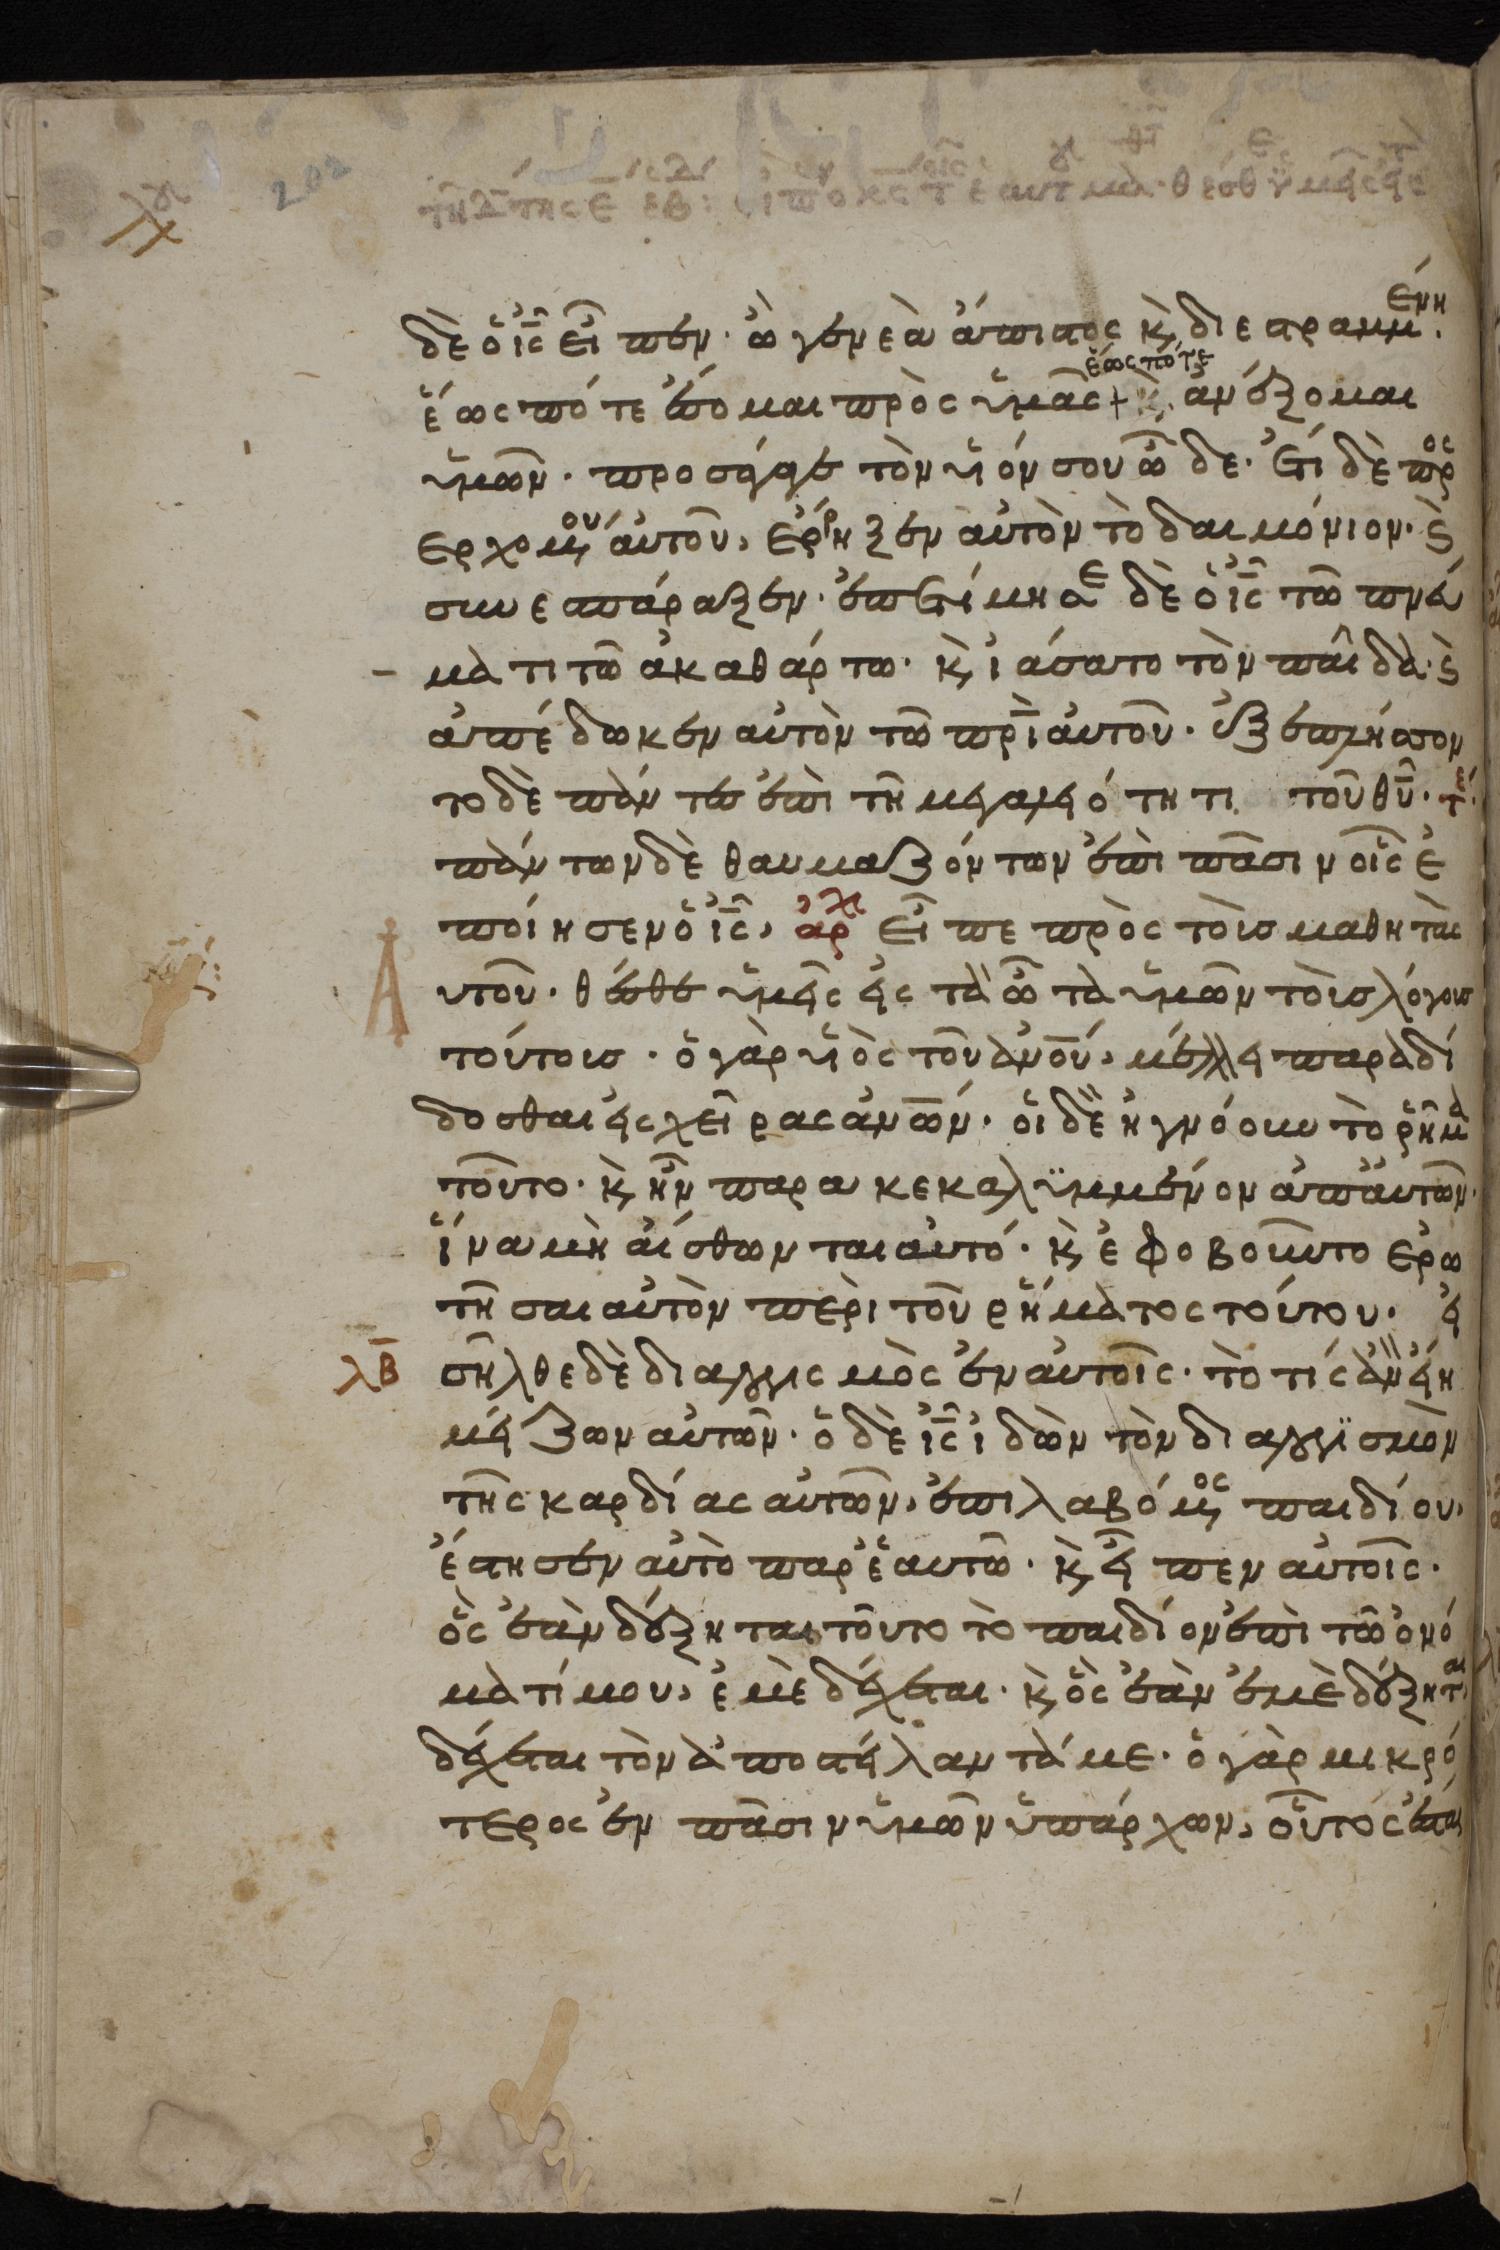 τῆ δ τῆς ε εβ
δὲ ὁ ἰς εἶπεν· ὦ γενεὰ ἄπιστος κ διεστραμμένη·
ἕως πότε ἔσομαι πρὸς ὑμᾶς + ἕως πότε κ ἀνέξομαι
ὑμῶν· προσάγαγε τὸν υἱόν σου ὧδε· ἔτι δὲ προς
ερχομένου αὐτοῦ, ἔρρηξεν αὐτὸν τὸ δαιμόνιον· κ
συνεσπάραξεν· ἐπετίμησε δὲ ὁ ἰς τῶ πνεύ
ματι τῶ ἀκαθάρτω· κ ἰάσατο τὸν παῖδα· κ
ἀπέδωκεν αὐτὸν τῶ πρὶ αὐτοῦ· ἐξεπλήσσον
το δὲ πάντες ἐπὶ τῆ μεγαλειότητι τοῦ θυ· τέ
πάντων δὲ θαυμαζόντων ἐπὶ πᾶσιν οἷς ἐ
ποίησεν ὁ ἰς, ἀρχ εἶπε πρὸς τοὺς μαθητὰς
αυτοῦ· θέσθε ὑμεῖς εἰς τὰ ὦτα ὑμῶν τοὺς λόγους
τούτους· ὁ γὰρ υἱὸς τοῦ ανου, μέλλει παραδί
δοσθαι εἰς χεῖρας ανων· οἱ δὲ ἠγνόουν τὸ ῥῆμα
τοῦτο· κ ἦν παρακεκαλυμμένον ἀπ αὐτῶν·
ἵνα μὴ αἴσθωνται αὐτό· κ ἐφοβοῦντο ἐρω
τῆσαι αὐτὸν περὶ τοῦ ῥήματος τούτου· εἰ
λβ σῆλθε δὲ διαλογισμὸς ἐν αὐτοῖς· τὸ τίς ἂν εἴη
μείζων αὐτῶν· ὁ δὲ ἰς ἰδὼν τὸν διαλογισμὸν
τῆς καρδίας αὐτῶν, ἐπιλαβόμενος παιδίου,
ἔστησεν αὐτὸ παρ ἑαυτῶ· κ εἶπεν αὐτοῖς·
ὃς ἐὰν δέξηται τοῦτο τὸ παιδίον ἐπὶ τῶ ὀνό
ματί μου, ἐμὲ δέχεται· κ ὃς ἐὰν ἐμὲ δέξηται
δέχεται τὸν ἀποστείλαντά με· ὁ γὰρ μικρό
τερος ἐν πᾶσιν ὑμῶν ὑπάρχων, οὗτός ἐσται